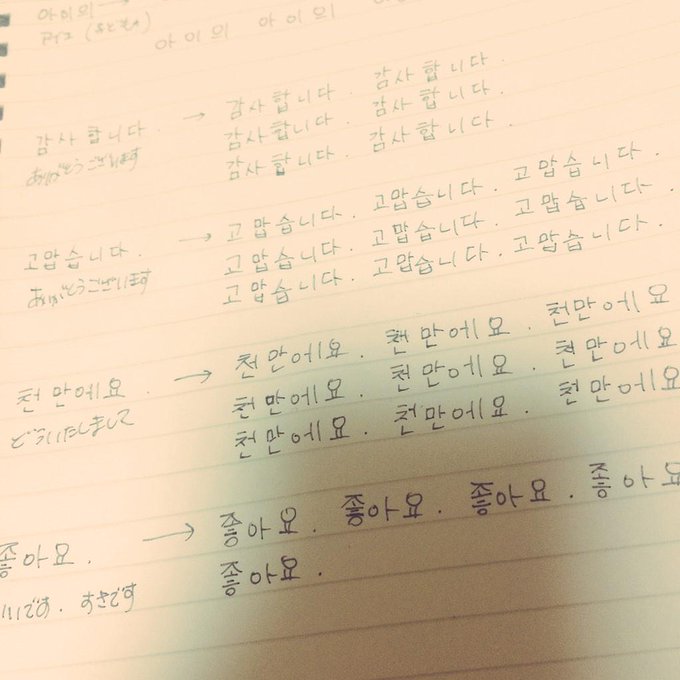 아이의 →
아이의 아이의
감사합니다. → 감사합니다. 감사합니다.
감사합니다. 감사합니다.
ありがとうございます 감사합니다. 감사합니다.
고맙습니다. → 고맙습니다. 고맙습니다. 고맙습니다.
고맙습니다. 고맙습니다. 고맙습니다.
ありがとうございます 고맙습니다. 고맙습니다. 고맙습니다.
천만에요. → 천만에요. 천만에요. 천만에요
천만에요. 천만에요. 천만에요
どういたしまして 천만에요. 천만에요. 천만에요
좋아요. → 좋아요. 좋아요. 좋아요. 좋아요
좋아요.
いいです. すきです